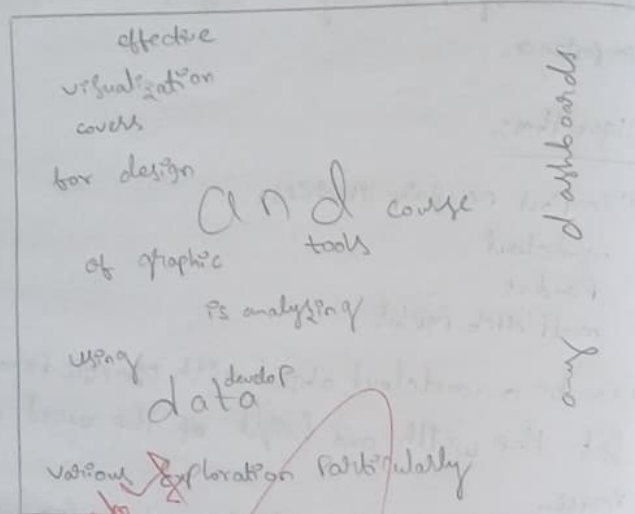 effective
visualization
covers
for design
and course
tools
of graphic
is analyzing
using
develop
data
various exploration Particularly
any dashboards